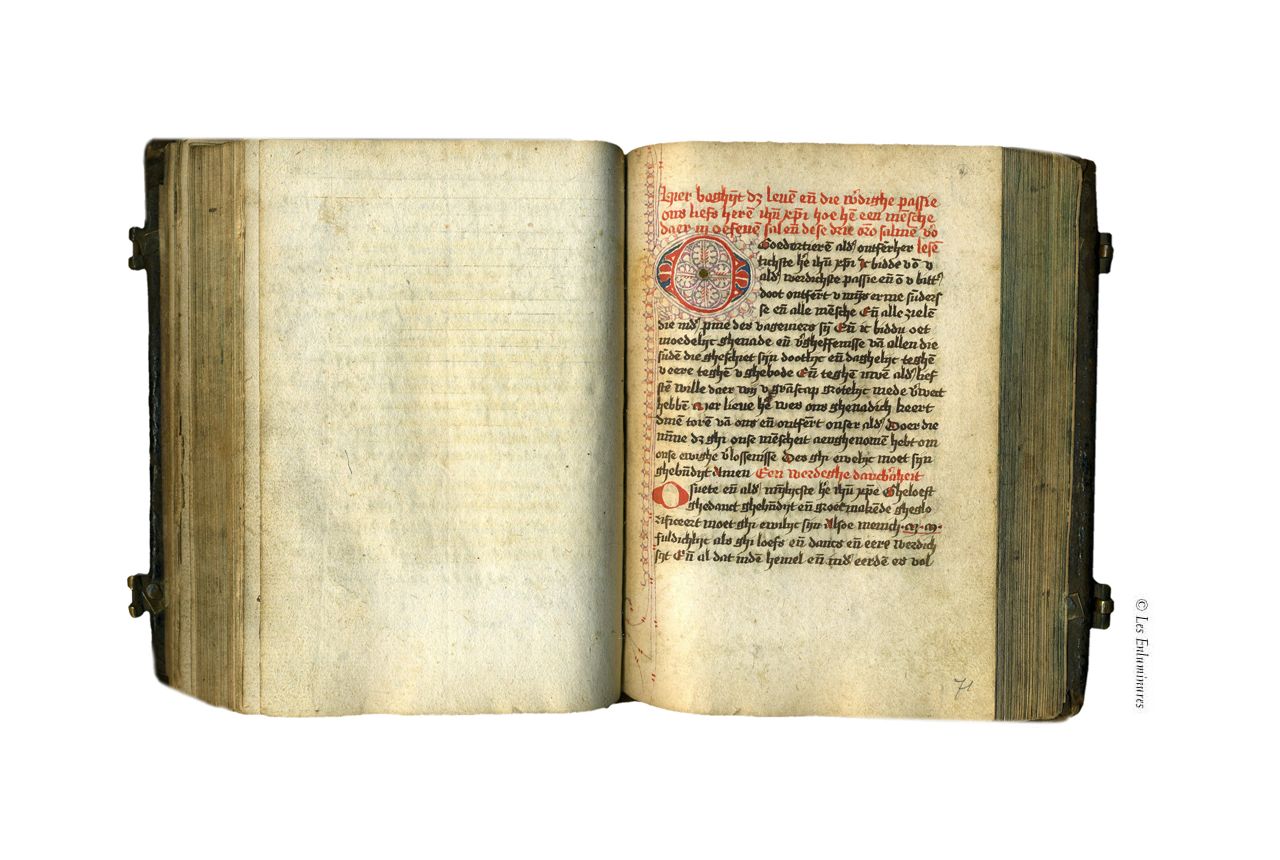 Hier beghȳt dz leuē en̄ die w'dighe passie
ons liefs herē ihū xpī hoe hē een mēsche
daer in oefenē sal en̄ dese drie oro salmē vo
O Goedertierē ald' ontfērher lesē
tichste hē ihū xpī Ic bidde v ō v
ald' werdichste passie en̄ ō v bitt'
doot ontfērt v mijs erme sūders
se en̄ alle mēsche En̄ alle zielē
die ind' pine des vageuiers sȳ En̄ ic biddu oet
moedelijc ghenade en̄ v'gheffenisse vā allen die
sūdē die gheschiet sijn dootlijc en̄ daghelijc teghē
v eere teghē v ghebode En̄ teghē uwē ald' lief
stē wille daer wij v grāscap grotelijc mede v'wect
hebbē Mar lieue hē wes ons ghenadich keert
dinē torē vā ons en̄ ontfērt onser ald' Doer die
mīne dz ghi onse mēscheit aenghenomē hebt om
onse ewighe v'lossenisse Des ghi ewelijc moet sijn
ghebn̄dijt Amen Een werdeghe dancb'heit
O suete en̄ ald' mīlijcste hē ihū xpē Gheloeft
ghedanct ghebn̄dijt en̄ groet makēde gheglo
rificeert moet ghi ewilijc sijn Alsoe menich M M
fuldichlijc als ghi loefs en̄ dancs en̄ eere werdich
sijt En̄ al dat indē hemel en̄ ind' eerdē es vol
71
© Les Enluminures